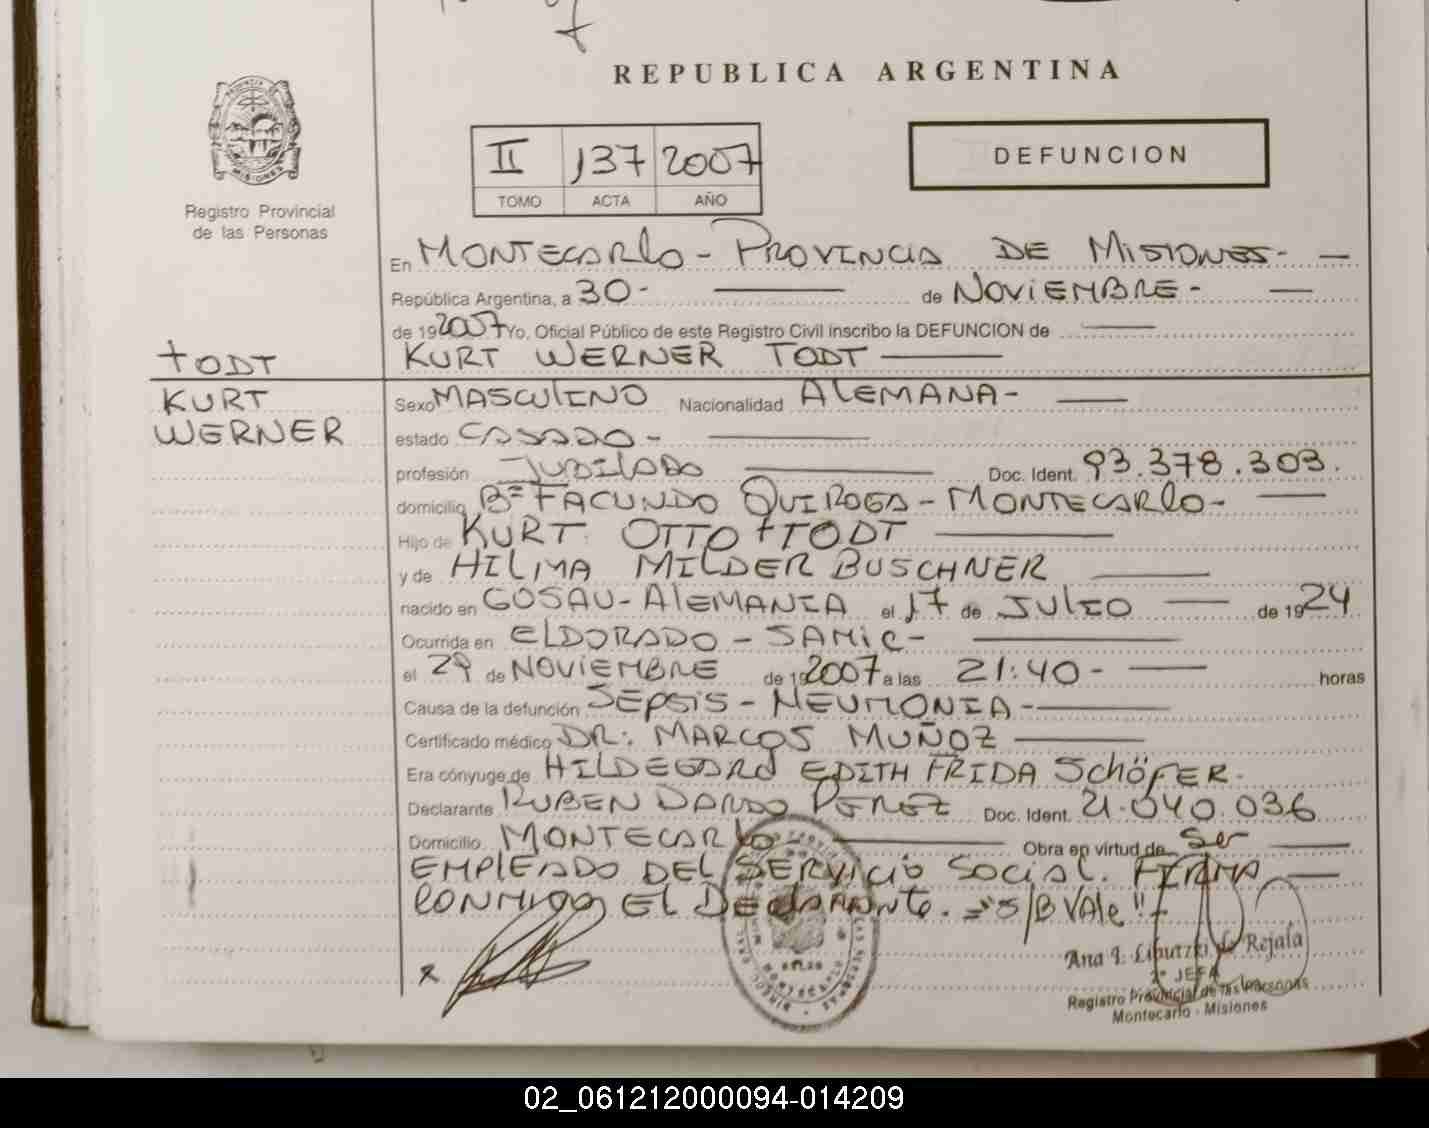 REPUBLICA ARGENTINA
II 137 2007
TOMO ACTA AÑO
DEFUNCION
Registro Provincial
de las Personas
En MONTECARLO - PROVINCIA DE MISIONES - —
República Argentina, a 30 - — de NOVIEMBRE - —
de 192007 Yo, Oficial Público de este Registro Civil inscribo la DEFUNCION de —
TODT
KURT WERNER TODT —
KURT
WERNER
Sexo MASCULINO Nacionalidad ALEMANA - —
estado CASADO - —
profesión JUBILADO — Doc. Ident. 93.378.303.
domicilio Bº FACUNDO QUIROGA - MONTECARLO - —
Hijo de KURT OTTO TODT —
y de HILMA MILDER BUSCHNER —
nacido en GOSAU - ALEMANIA el 17 de JULIO — de 1924
Ocurrida en ELDORADO - SAMIC - —
el 29 de NOVIEMBRE de 192007 a las 21:40 - — horas
Causa de la defunción SEPSIS - NEUMONIA - —
Certificado médico DR: MARCOS MUÑOZ —
Era cónyuge de HILDEGARD EDITH FRIDA SCHÖFER.
Declarante RUBEN DARIO PEREZ Doc. Ident. 21.040.036
Domicilio MONTECARLO - — Obra en virtud de Ser —
EMPLEADO DEL SERVICIO SOCIAL. FIRMA —
CONMIGO EL DECLARANTE. = "S/B VALE"
Ana I. de Rejala
JEFA
Registro Provincial de las Personas
Montecarlo - Misiones
02_061212000094-014209